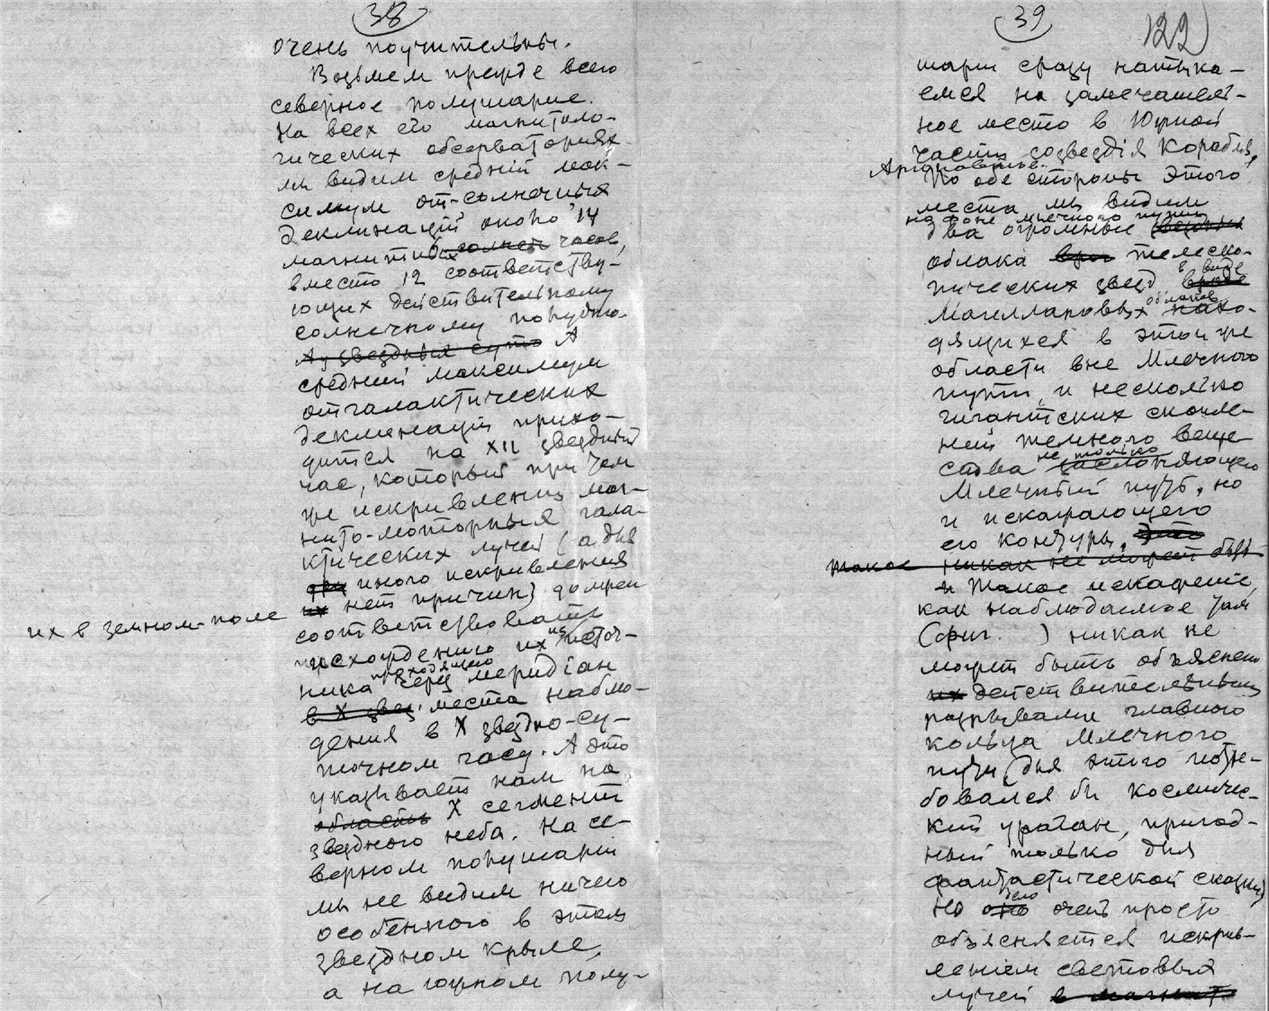 38
очень поучительны.
Возьмем прежде всего
северное полушарие.
На всех его магнитоло-
гических обсерваториях
мы видим средний мак-
симум от-солнечных
деклинаций около 14
магнитных солнеч часов,
вместо 12 соответству-
ющих действительному
солнечному полудню.
А у звездных суто А
средний максимум
отгалактических
деклинаций прихо-
дится на XII звездный
час, который при чем
же искривлении маг-
нито-моторных гала-
ктических лучей (а для
иного искривления
их в земном поле
их нет причин) должен
соответствовать
происхождению их из источ-
ника проходящего через меридіан
в X звез. места наблю-
дения в X звездно-су-
точном часу. А это
указывает нам на
область X сегмент
звездного неба. На се-
верном полушарии
мы не видим ничего
особенного в этом
звездном крыле,
а на южном полу-
39
122
шарии сразу натыка-
емся на замечатель-
ное место в Южной
части созвездія Корабля,
Аргонавтов.
По обе стороны этого
места мы видим
на фоне млечного пути
два огромные
облака телеско-
пических звезд в виде вроде
Магеллановых облаков нахо-
дящихся в этой же
области вне Млечного
пути, и несколько
гигантских скопле-
ний темного веще-
ства не только заслоняющего
Млечный путь, но
и искажающего
его контуры. Это
такое никак не может быть
и Такое искажение,
как наблюдаемое там
(фиг. ) никак не
может быть объяснено
их действительными
разрывами главного
кольца Млечного
пути (для этого потре-
бовался бы космичес-
кий ураган, пригод-
ный только для
фантастической сказки)
но оно дело очень просто
объясняется искрив-
лением световых
лучей в магнит